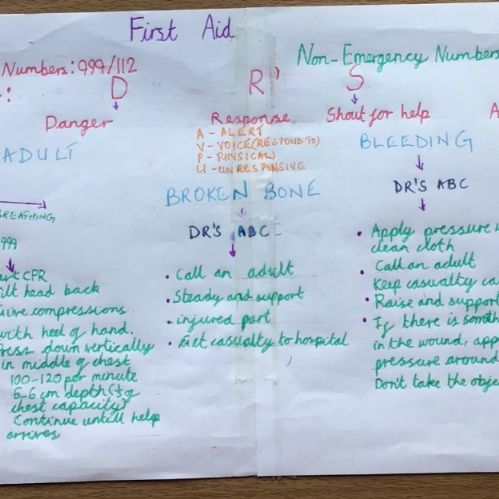 First Aid
Numbers: 999/112
Non-Emergency Numbers
D
R'
S
Danger
Response
A - ALERT
V - VOICE (RESPOND TO)
P - PHYSICAL)
U - UNRESPONSIVE
Shout for help
A
ADULT
BREATHING
999
CPR
tilt head back
compressions
with heel of hand.
Press down vertically
in middle of chest
100-120 per minute
5-6 cm depth
chest capacity)
Continue untill help
arrives
BROKEN BONE
DR'S ABC
• Call an adult
• Steady and support
• injured part
• Get casualty to hospital
BLEEDING
DR'S ABC
• Apply pressure
clean cloth
• Call an adult
Keep casualty
• Raise and support
• If there is
in the wound,
pressure around
Don't take the